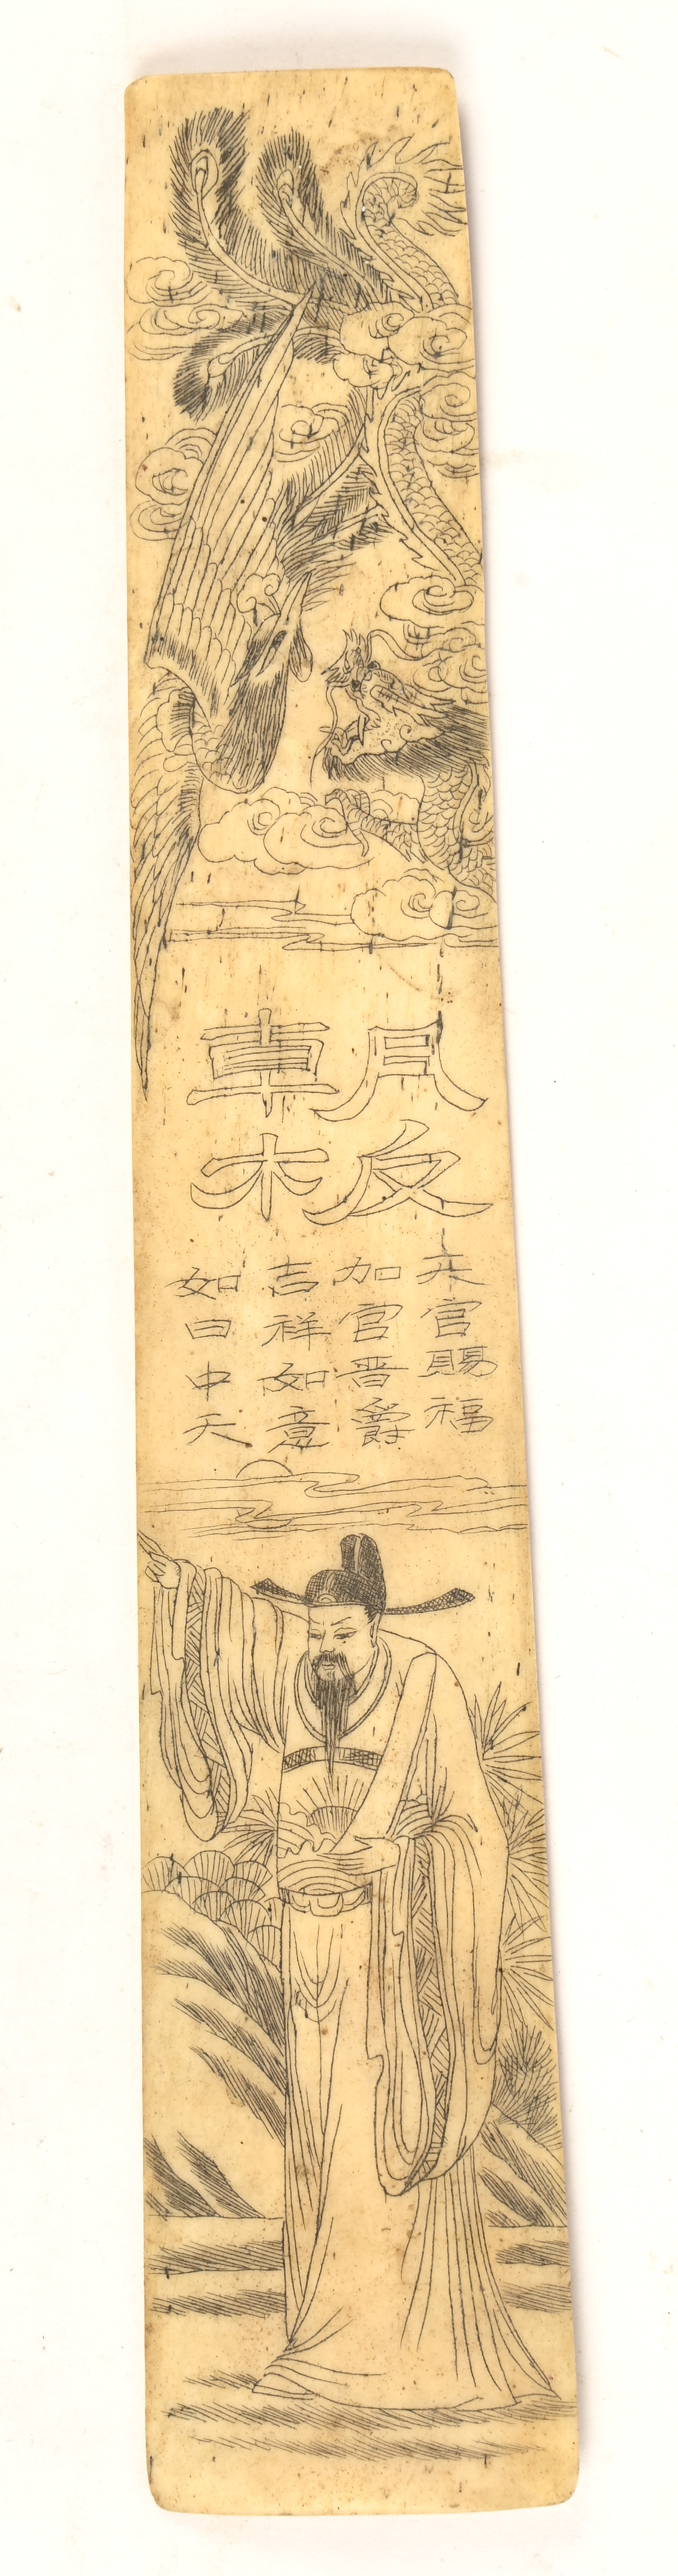 月反
車木
天官賜福
加官晋爵
吉祥如意
如日中天